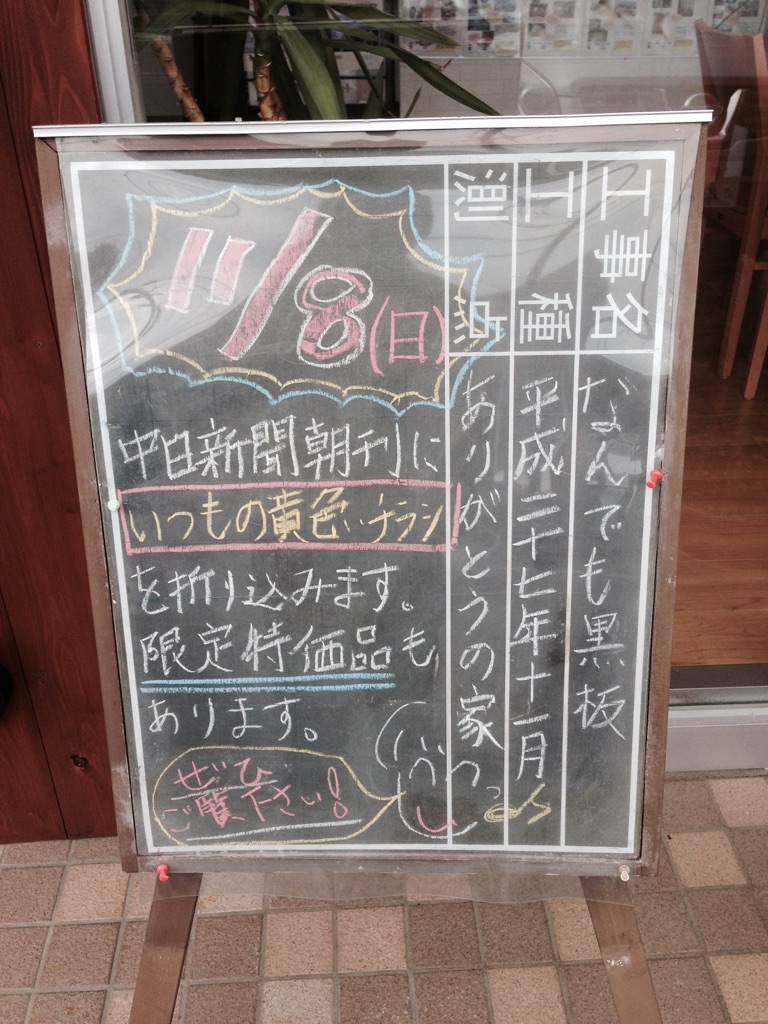 工事名 なんでも黒板
工種 平成二十七年十一月
測点 ありがとうの家
11/8(日)
中日新聞朝刊に
いつもの黄色いチラシ
を折り込みます。
限定特価品も
あります。
ぜひ
ご覧下さい!